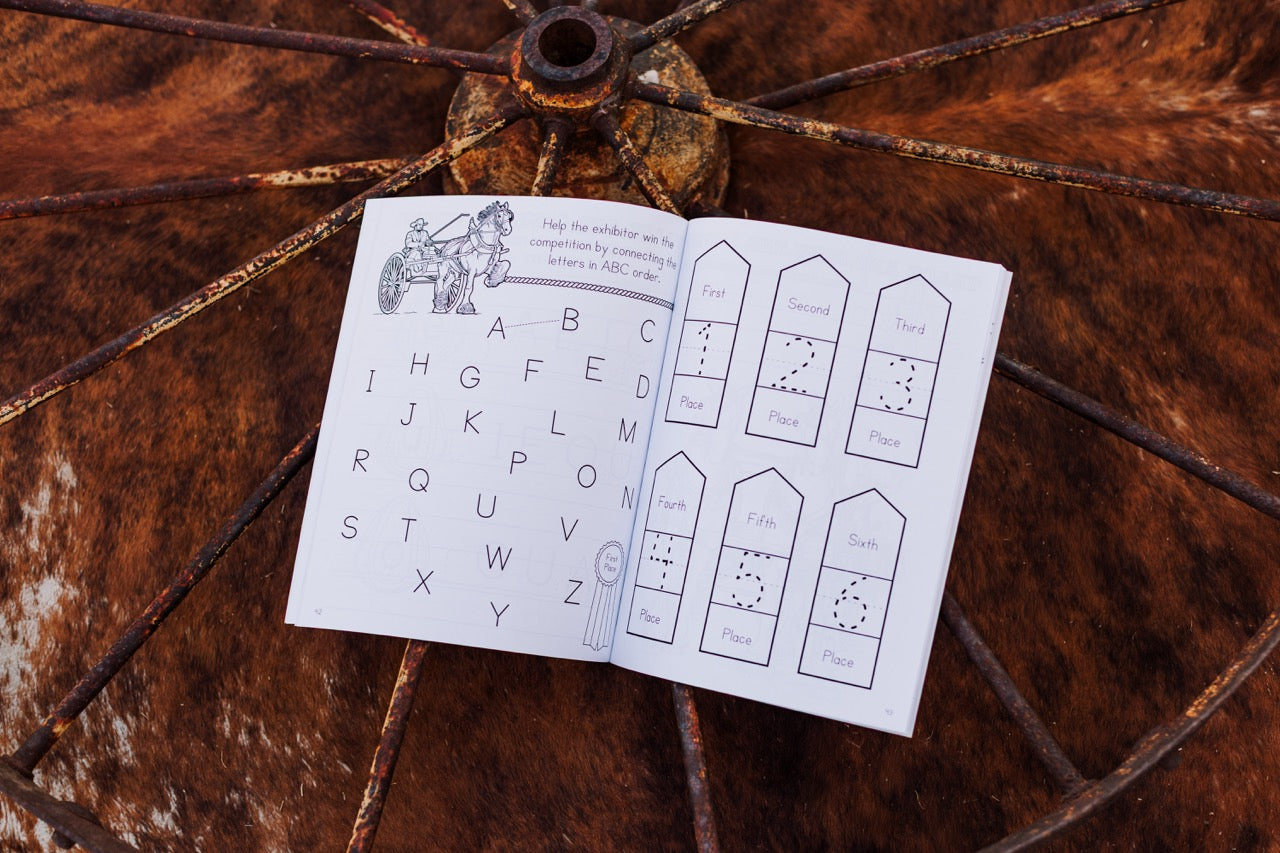 Help the exhibitor win the
competition by connecting the
letters in ABC order.
A B C
H G F E D
I
J K L M
R Q P O N
S T U V
X W Z
Y
First
Place
42
First Second Third
1 2 3
Place Place Place
Fourth Fifth Sixth
4 5 6
Place Place Place
43